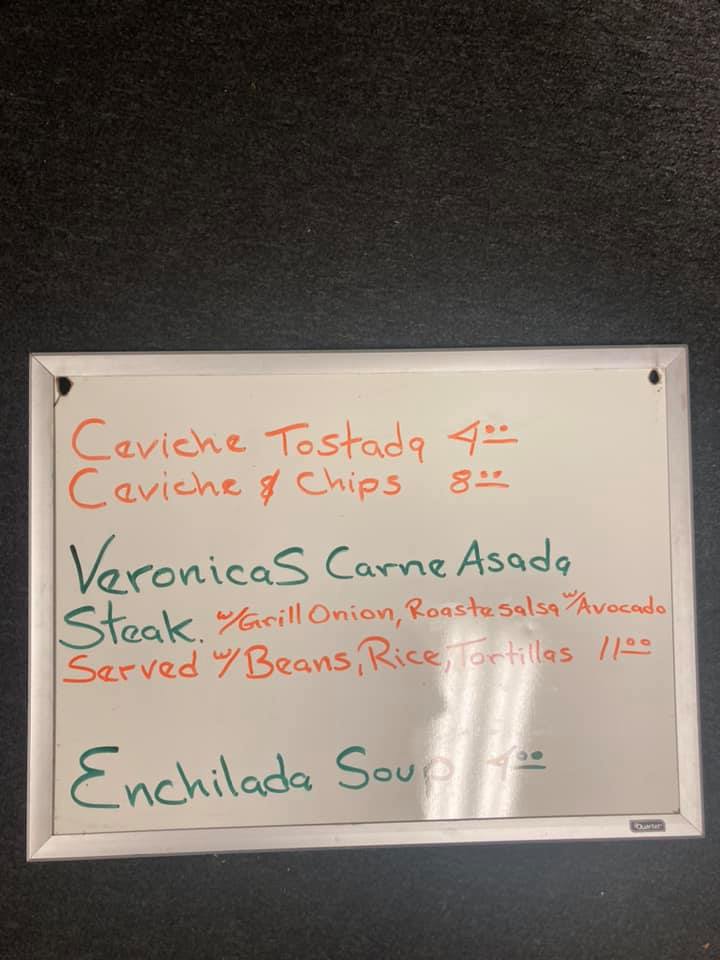 Ceviche Tostada 4.00
Ceviche & Chips 8.00
Veronicas Carne Asada
Steak. w/Grill Onion, Roaste salsa w/Avocado
Served w/Beans, Rice, Tortillas 11.00
Enchilada Soup 4.00
Quartet